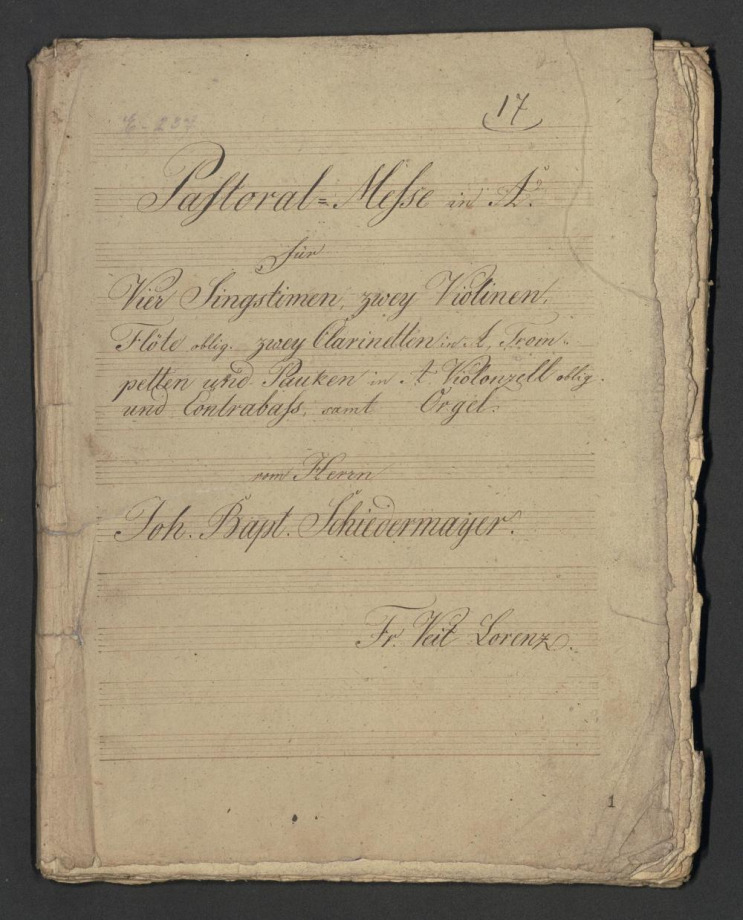 17
E-237
Pastoral=Messe in A.
für
Vier Singstimen, zwey Violinen,
Flöte oblig. zwey Clarinetten in A, Trom=
petten und Pauken in A Violonzell oblig.
und Contrabass, samt Orgel.
vom Herrn
Joh. Bapt. Schiedermayer.
Fr. Veit Lorenz.
1